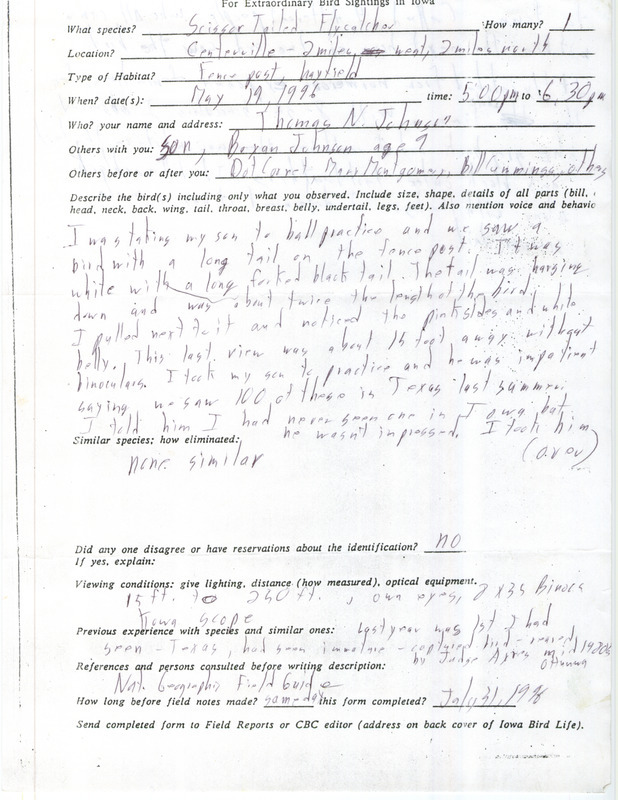 For Extraordinary Bird Sightings in Iowa
What species? Scissor Tailed Flycatcher How many? 1
Location? Centerville - 2 miles west, 2 miles north
Type of Habitat? Fence post, hayfield
When? date(s): May 19, 1996 time: 5:00 pm to 6:30 pm
Who? your name and address: Thomas N. Johnson
Others with you: Son, Johnson age 9
Others before or after you: Mary Montgomery, Bill Cummings, others
Describe the bird(s) including only what you observed. Include size, shape, details of all parts (bill,
head, neck, back, wing, tail, throat, breast, belly, undertail, legs, feet). Also mention voice and behavio
I was taking my son to ball practice and we saw a
bird with a long tail on the fence post. It was
white with a long forked black tail. The tail was hanging
down and was about twice the length of the bird.
I pulled next to it and noticed the pink sides and white
belly. This last view was about 15 feet away without
binoculars. I took my son to practice and he was impatient
saying we saw 100 of these in Texas last summer.
I told him I had never seen one in Iowa but
he wasn't impressed. I took him
Similar species; how eliminated:
(over)
none similar
Did any one disagree or have reservations about the identification? no
If yes, explain:
Viewing conditions: give lighting, distance (how measured), optical equipment.
15 ft. to 250 ft., own eyes, x35 Binocs
Kowa scope
Previous experience with species and similar ones: Last year was 1st I had
seen - Texas, had seen immature - captured bird - reared
by Judge Ayres mid 1980s
Ottumwa
References and persons consulted before writing description:
Nat. Geographic Field Guide
How long before field notes made? same day this form completed? July 31, 1996
Send completed form to Field Reports or CBC editor (address on back cover of Iowa Bird Life).